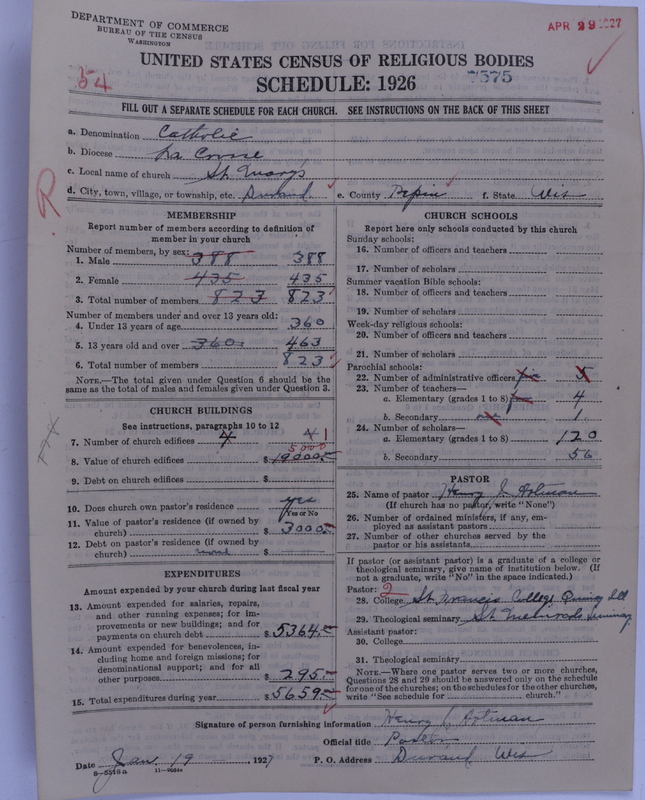 DEPARTMENT OF COMMERCE
BUREAU OF THE CENSUS
WASHINGTON
APR 29 1927
UNITED STATES CENSUS OF RELIGIOUS BODIES
7575
54
SCHEDULE: 1926
FILL OUT A SEPARATE SCHEDULE FOR EACH CHURCH. SEE INSTRUCTIONS ON THE BACK OF THIS SHEET
a. Denomination Catholic
b. Diocese La Crosse
c. Local name of church St. Marys
d. City, town, village, or township, etc. Durand e. County Pepin f. State Wis
R
MEMBERSHIP
Report number of members according to definition of
member in your church
Number of members, by sex:
1. Male 388 388
2. Female 435 435
3. Total number of members 823 823
Number of members under and over 13 years old:
4. Under 13 years of age 360
5. 13 years old and over 360 463
6. Total number of members 823
NOTE.—The total given under Question 6 should be the
same as the total of males and females given under Question 3.
CHURCH BUILDINGS
See instructions, paragraphs 10 to 12
7. Number of church edifices 4 4 1
5000
8. Value of church edifices $19000
9. Debt on church edifices $
10. Does church own pastor's residence yes
Yes or No
11. Value of pastor's residence (if owned by
church) $3000
12. Debt on pastor's residence (if owned by
church) $
EXPENDITURES
Amount expended by your church during last fiscal year
13. Amount expended for salaries, repairs,
and other running expenses; for im-
provements or new buildings; and for
payments on church debt $5364
14. Amount expended for benevolences, in-
cluding home and foreign missions; for
denominational support; and for all
other purposes $295
15. Total expenditures during year $5659
CHURCH SCHOOLS
Report here only schools conducted by this church
Sunday schools:
16. Number of officers and teachers
17. Number of scholars
Summer vacation Bible schools:
18. Number of officers and teachers
19. Number of scholars
Week-day religious schools:
20. Number of officers and teachers
21. Number of scholars
Parochial schools:
22. Number of administrative officers 5
23. Number of teachers—
a. Elementary (grades 1 to 8) 4
b. Secondary 1
24. Number of scholars—
a. Elementary (grades 1 to 8) 120
b. Secondary 56
PASTOR
25. Name of pastor Henry J. Artman
(If church has no pastor, write "None")
26. Number of ordained ministers, if any, em-
ployed as assistant pastors
27. Number of other churches served by the
pastor or his assistants
If pastor (or assistant pastor) is a graduate of a college or
theological seminary, give name of institution below. (If
not a graduate, write "No" in the space indicated.)
Pastor: 2
28. College St. Francis College Quincy Ill
29. Theological seminary St. Meinrads Seminary
Assistant pastor:
30. College
31. Theological seminary
NOTE.—Where one pastor serves two or more churches,
Questions 28 and 29 should be answered only on the schedule
for one of the churches; on the schedules for the other churches,
write "See schedule for church."
Signature of person furnishing information Henry J. Artman
Official title Pastor
Date Jan. 19, 1927 P. O. Address Durand Wis
8-5318a 11-9684